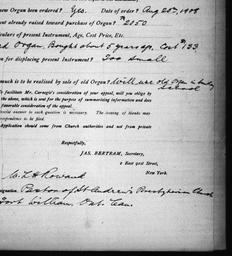 new Organ been ordered? Yes Date of order? Aug 28th, 1908
already raised toward purchase of Organ? $2150
iculars of present Instrument, Age, Cost Price, Etc.
ed Organ. Bought about 5 years ago, Cost $133
on for displacing present Instrument? Too small
much is to be realised by sale of old Organ? Will use old organ in Sunday School
ly facilitate Mr. Carnegie's consideration of your appeal, will you oblige by
the above, which is used for the purpose of summarizing information and does
favorable consideration of the appeal?
answer to each question is necessary. The issuing of blanks may
respondences to be filed.
Application should come from Church authorities and not from private
Respectfully,
JAS. BERTRAM, Secretary,
2 East 91st Street,
New York.
Rowand
Pastor of St Andrew's Presbyterian Church
Fort William Ont. Can.